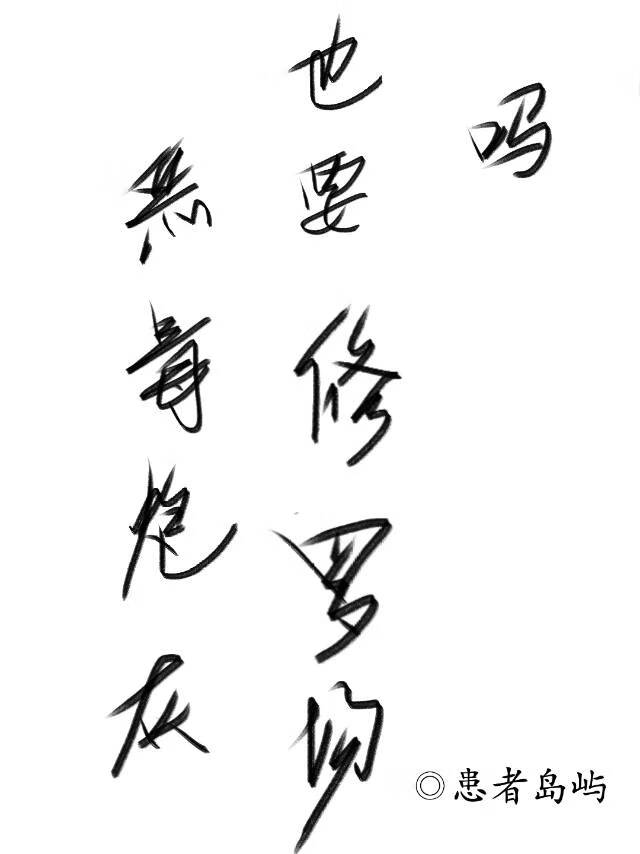 恶毒炮灰
也要修罗场
吗
◎患者岛屿